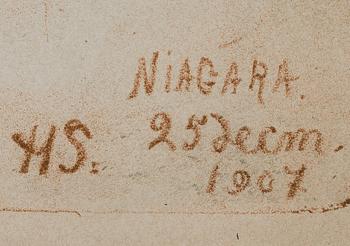 NiAGARA.
HS. 25 decm.
1907